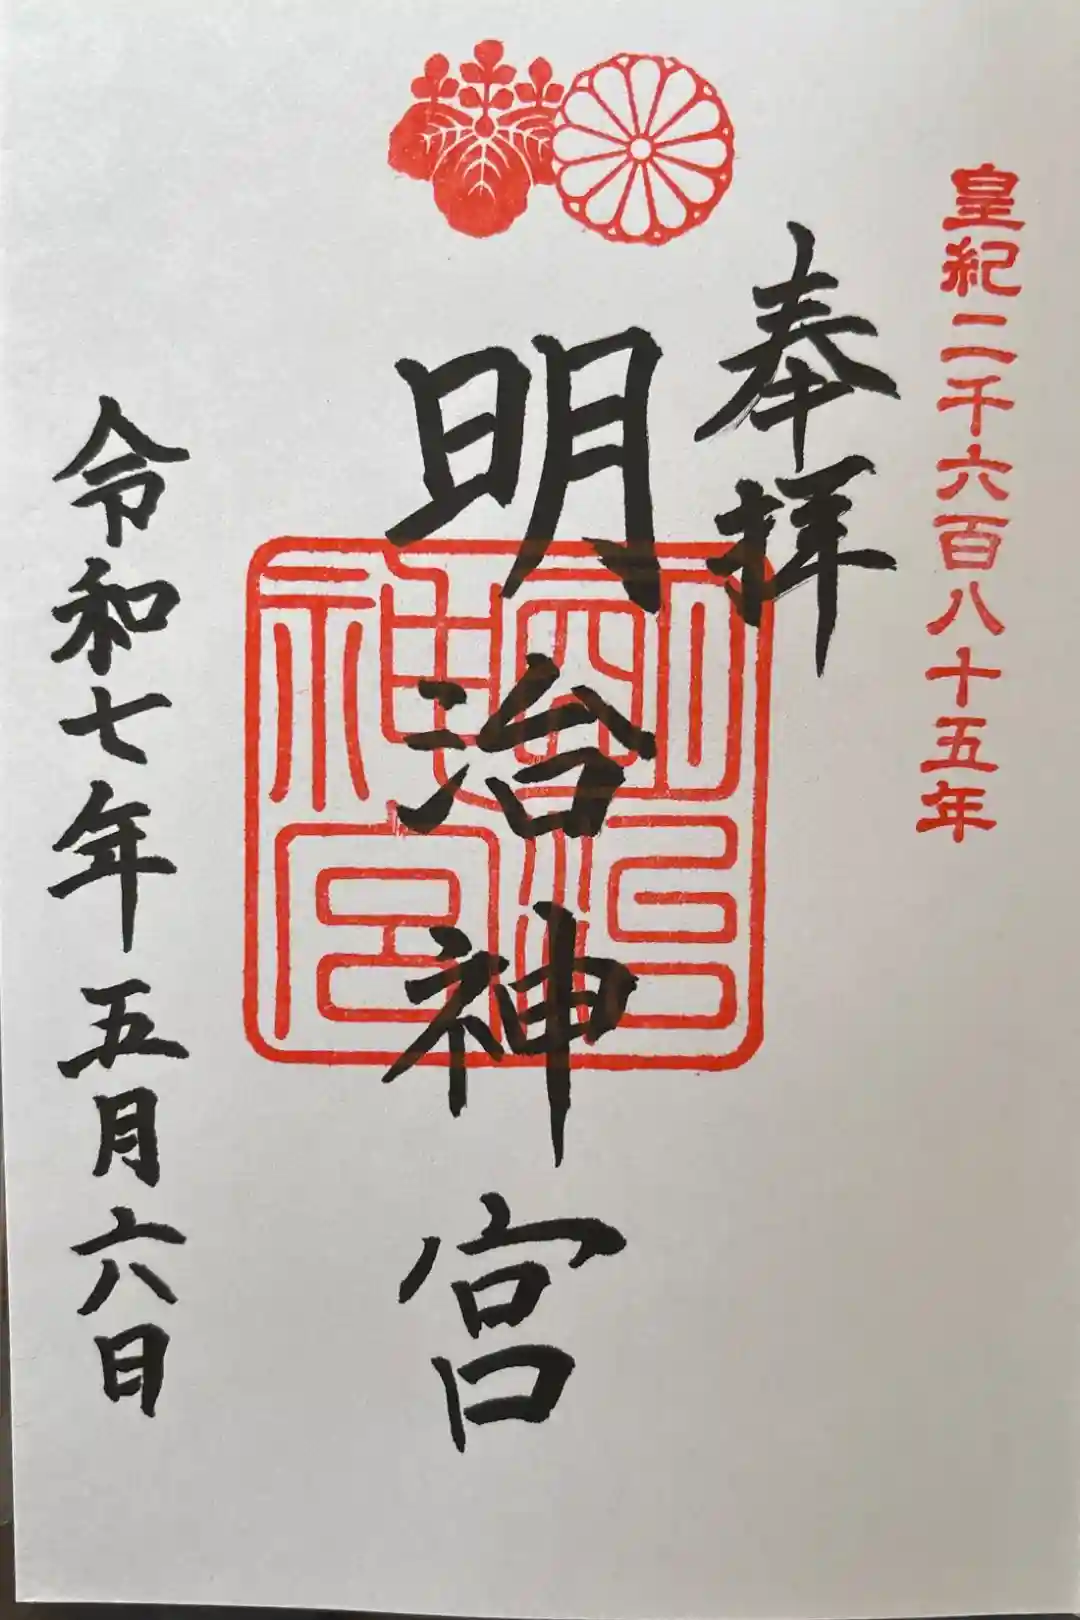 皇紀二千六百八十五年
奉拝
明治神宮
明治神宮
令和七年五月六日